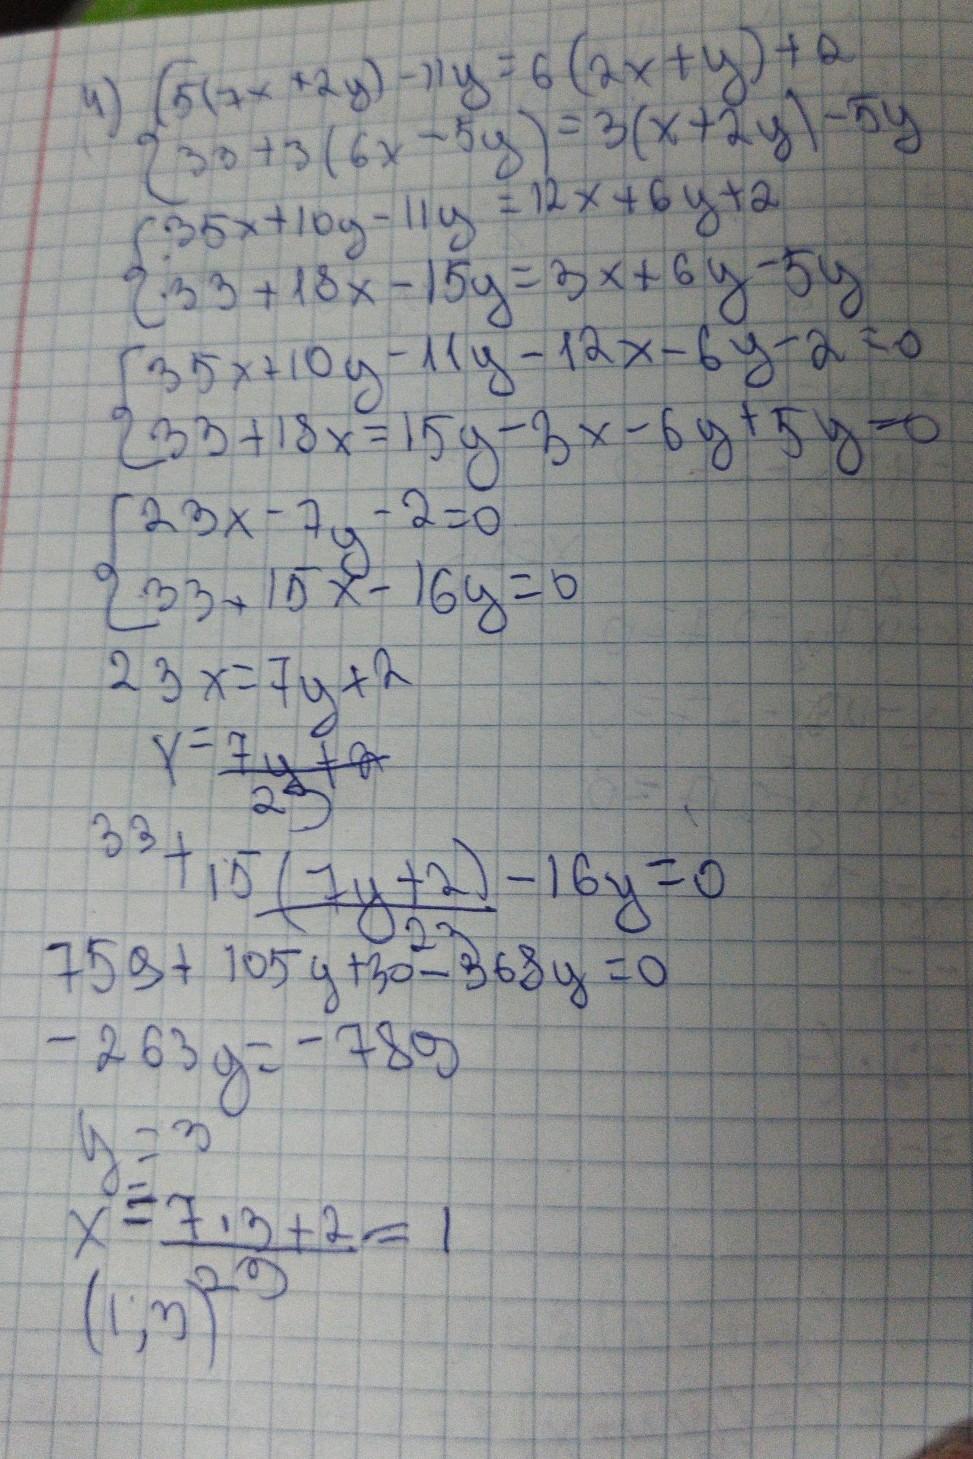 4) {5(7x+2y)-11y=6(2x+y)+2
{33+3(6x-5y)=3(x+2y)-5y
{35x+10y-11y=12x+6y+2
{33+18x-15y=3x+6y-5y
{35x+10y-11y-12x-6y-2=0
{33+18x=15y-3x-6y+5y=0
{23x-7y-2=0
{33+15x-16y=0
23x=7y+2
x=\frac{7y+2}{23}
33+\frac{15(7y+2)}{23}-16y=0
759+105y+30-368y=0
-263y=-789
y=3
x=\frac{7·3+2}{23}=1
(1;3)